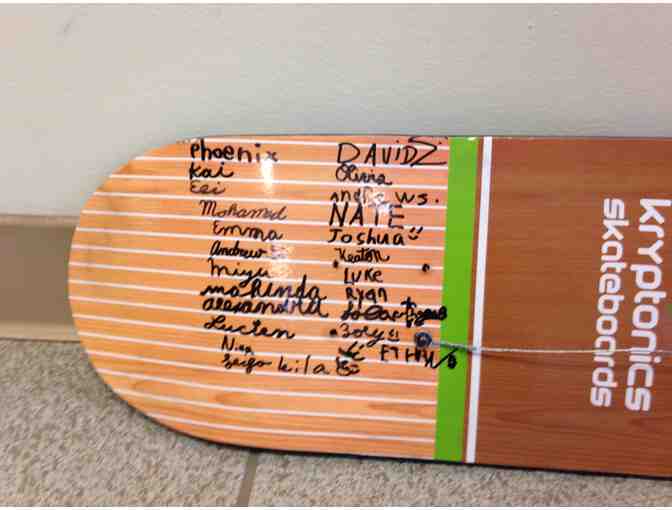 Phoenix
Kai
Mohamed
Emma
Andrew
Miyu
makinda
alexandra
Lucien
Nina
kila
DAVID Z
Olivia
andre w s.
NATE
Joshua
Keaton
LUKE
Ryan
Zory
kryptonics
skateboards